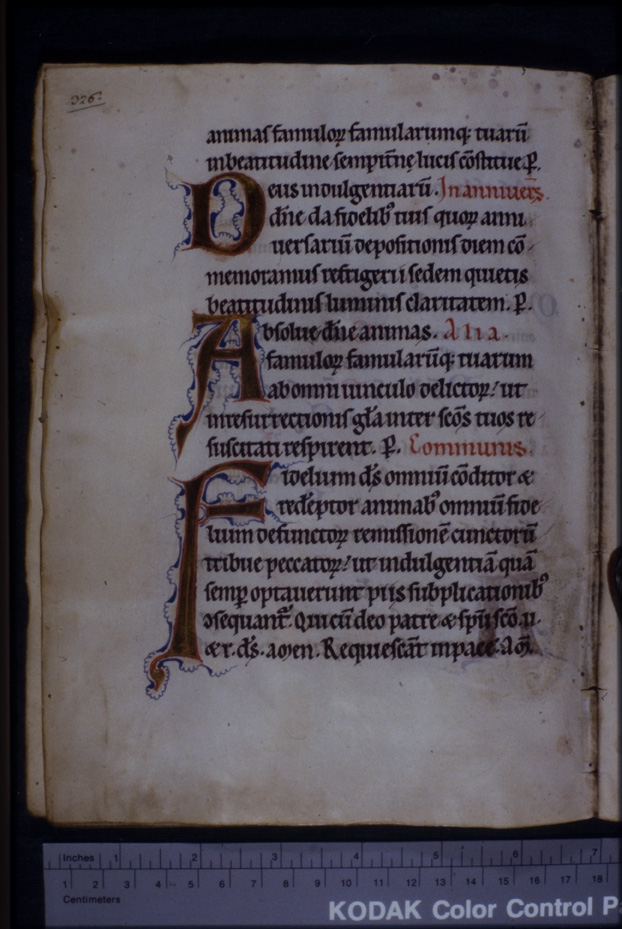 326.
animas famuloꝝ famularumq; tuarū
inbeatitudine sempit̄nę lucis cōstitue. P̲.
Deus indulgentiarū. In anniuers̄.
dn̄e da fidelib; tuis quoꝝ anni
uersariū depositionis diem cō-
memoramus refrigerii sedem quietis
beatitudinis luminis claritatem. P̲.
Absolue dn̄e animas. Alia.
famuloꝝ famularūq; tuarum
ab omni uinculo delictoꝝ! ut
inresurrectionis gl̄a inter sc̄os tuos re
suscitati respirent. P̲. Communis.
Fidelium ds̄ omniū cōditor &
redēptor animab; omniū fide
lium defunctoꝝ remissionē cunctorū
tribue peccatoꝝ! ut indulgentiā quā
semp̲ optauerunt piis subplicationib;
ↄsequant᷑. Qui cū deo patre & sp̄u sc̄o. u.
& r. ds̄. amen. Requiescāt inpace. am̄.
Inches 1 2 3 4 5 6 7
1 2 3 4 5 6 7 8 9 10 11 12 13 14 15 16 17 18
Centimeters
KODAK Color Control P